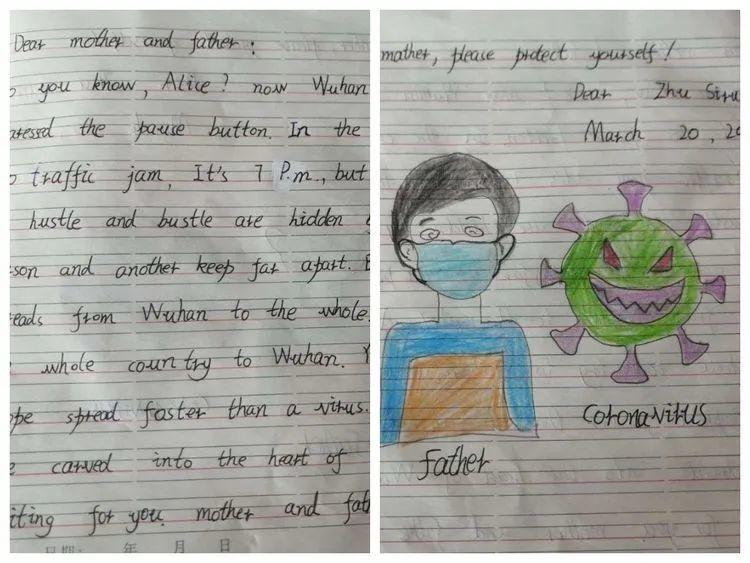 Dear mother and father:
o you know, Alice? now Wuhan
ressed the pause button. In the
o traffic jam, It's 7 P.m., but
hustle and bustle are hidden
son and another keep far apart.
eads from Wuhan to the whole
whole country to Wuhan.
ope spread faster than a virus.
e carved into the heart of
iting for you. mother and fath
日期: 年 月 日
mather, please protect yourself!
Dear Zhu Siru
March 20, 20
father
coronavirus